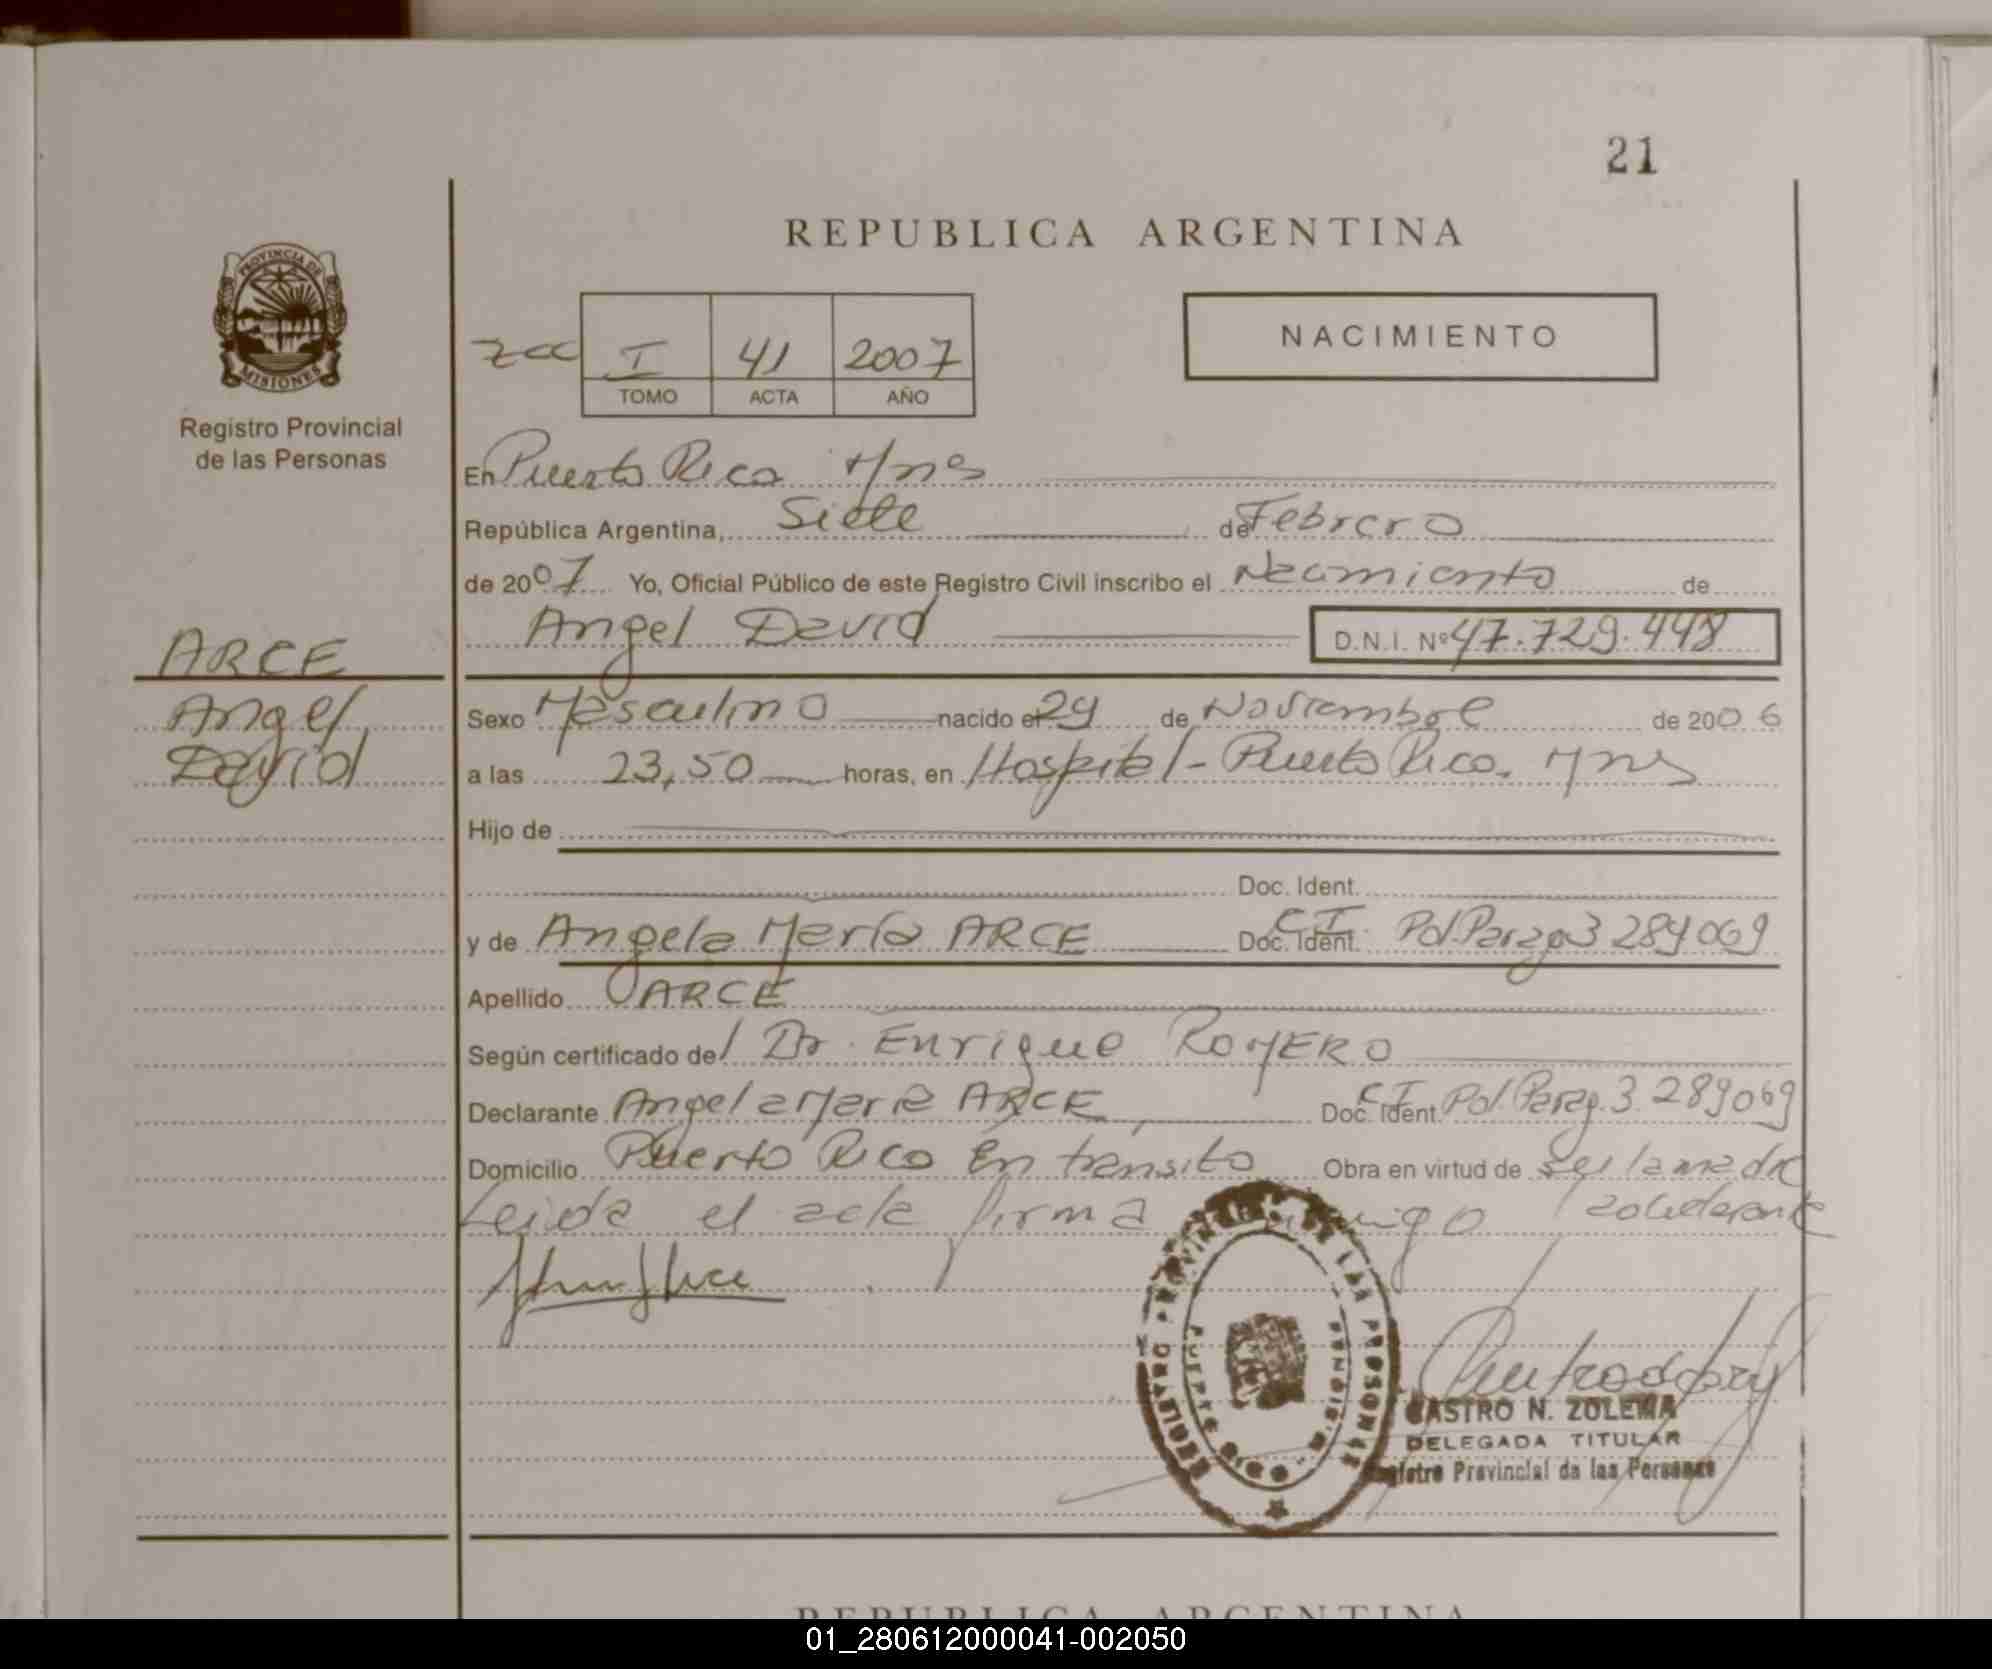 21
REPUBLICA ARGENTINA
PROVINCIA DE MISIONES
Registro Provincial
de las Personas
I 41 2007
TOMO ACTA AÑO
NACIMIENTO
En Puerto Rico Mnes
República Argentina, Siete de Febrero
de 2007 Yo, Oficial Público de este Registro Civil inscribo el Nacimiento de
Angel David D.N.I. Nº 47.729.448
ARCE
Angel
David
Sexo Masculino nacido el 29 de Noviembre de 2006
a las 23,50 horas, en Hospital - Puerto Rico. Mnes
Hijo de
Doc. Ident.
y de Angela María ARCE Doc. Ident. C I Pol. Parag 3 289069
Apellido ARCE
Según certificado del Dr. Enrique ROMERO
Declarante Angela María ARCE Doc. Ident. C I Pol. Parag. 3.289069
Domicilio Puerto Rico En transito Obra en virtud de ser la madre
Leida el acta firma conmigo la declarante
REGISTRO PROVINCIAL DE LAS PERSONAS
PUERTO RICO MISIONES
CASTRO N. ZOLEMA
DELEGADA TITULAR
Registro Provincial de las Personas
REPUBLICA ARGENTINA
01_280612000041-002050